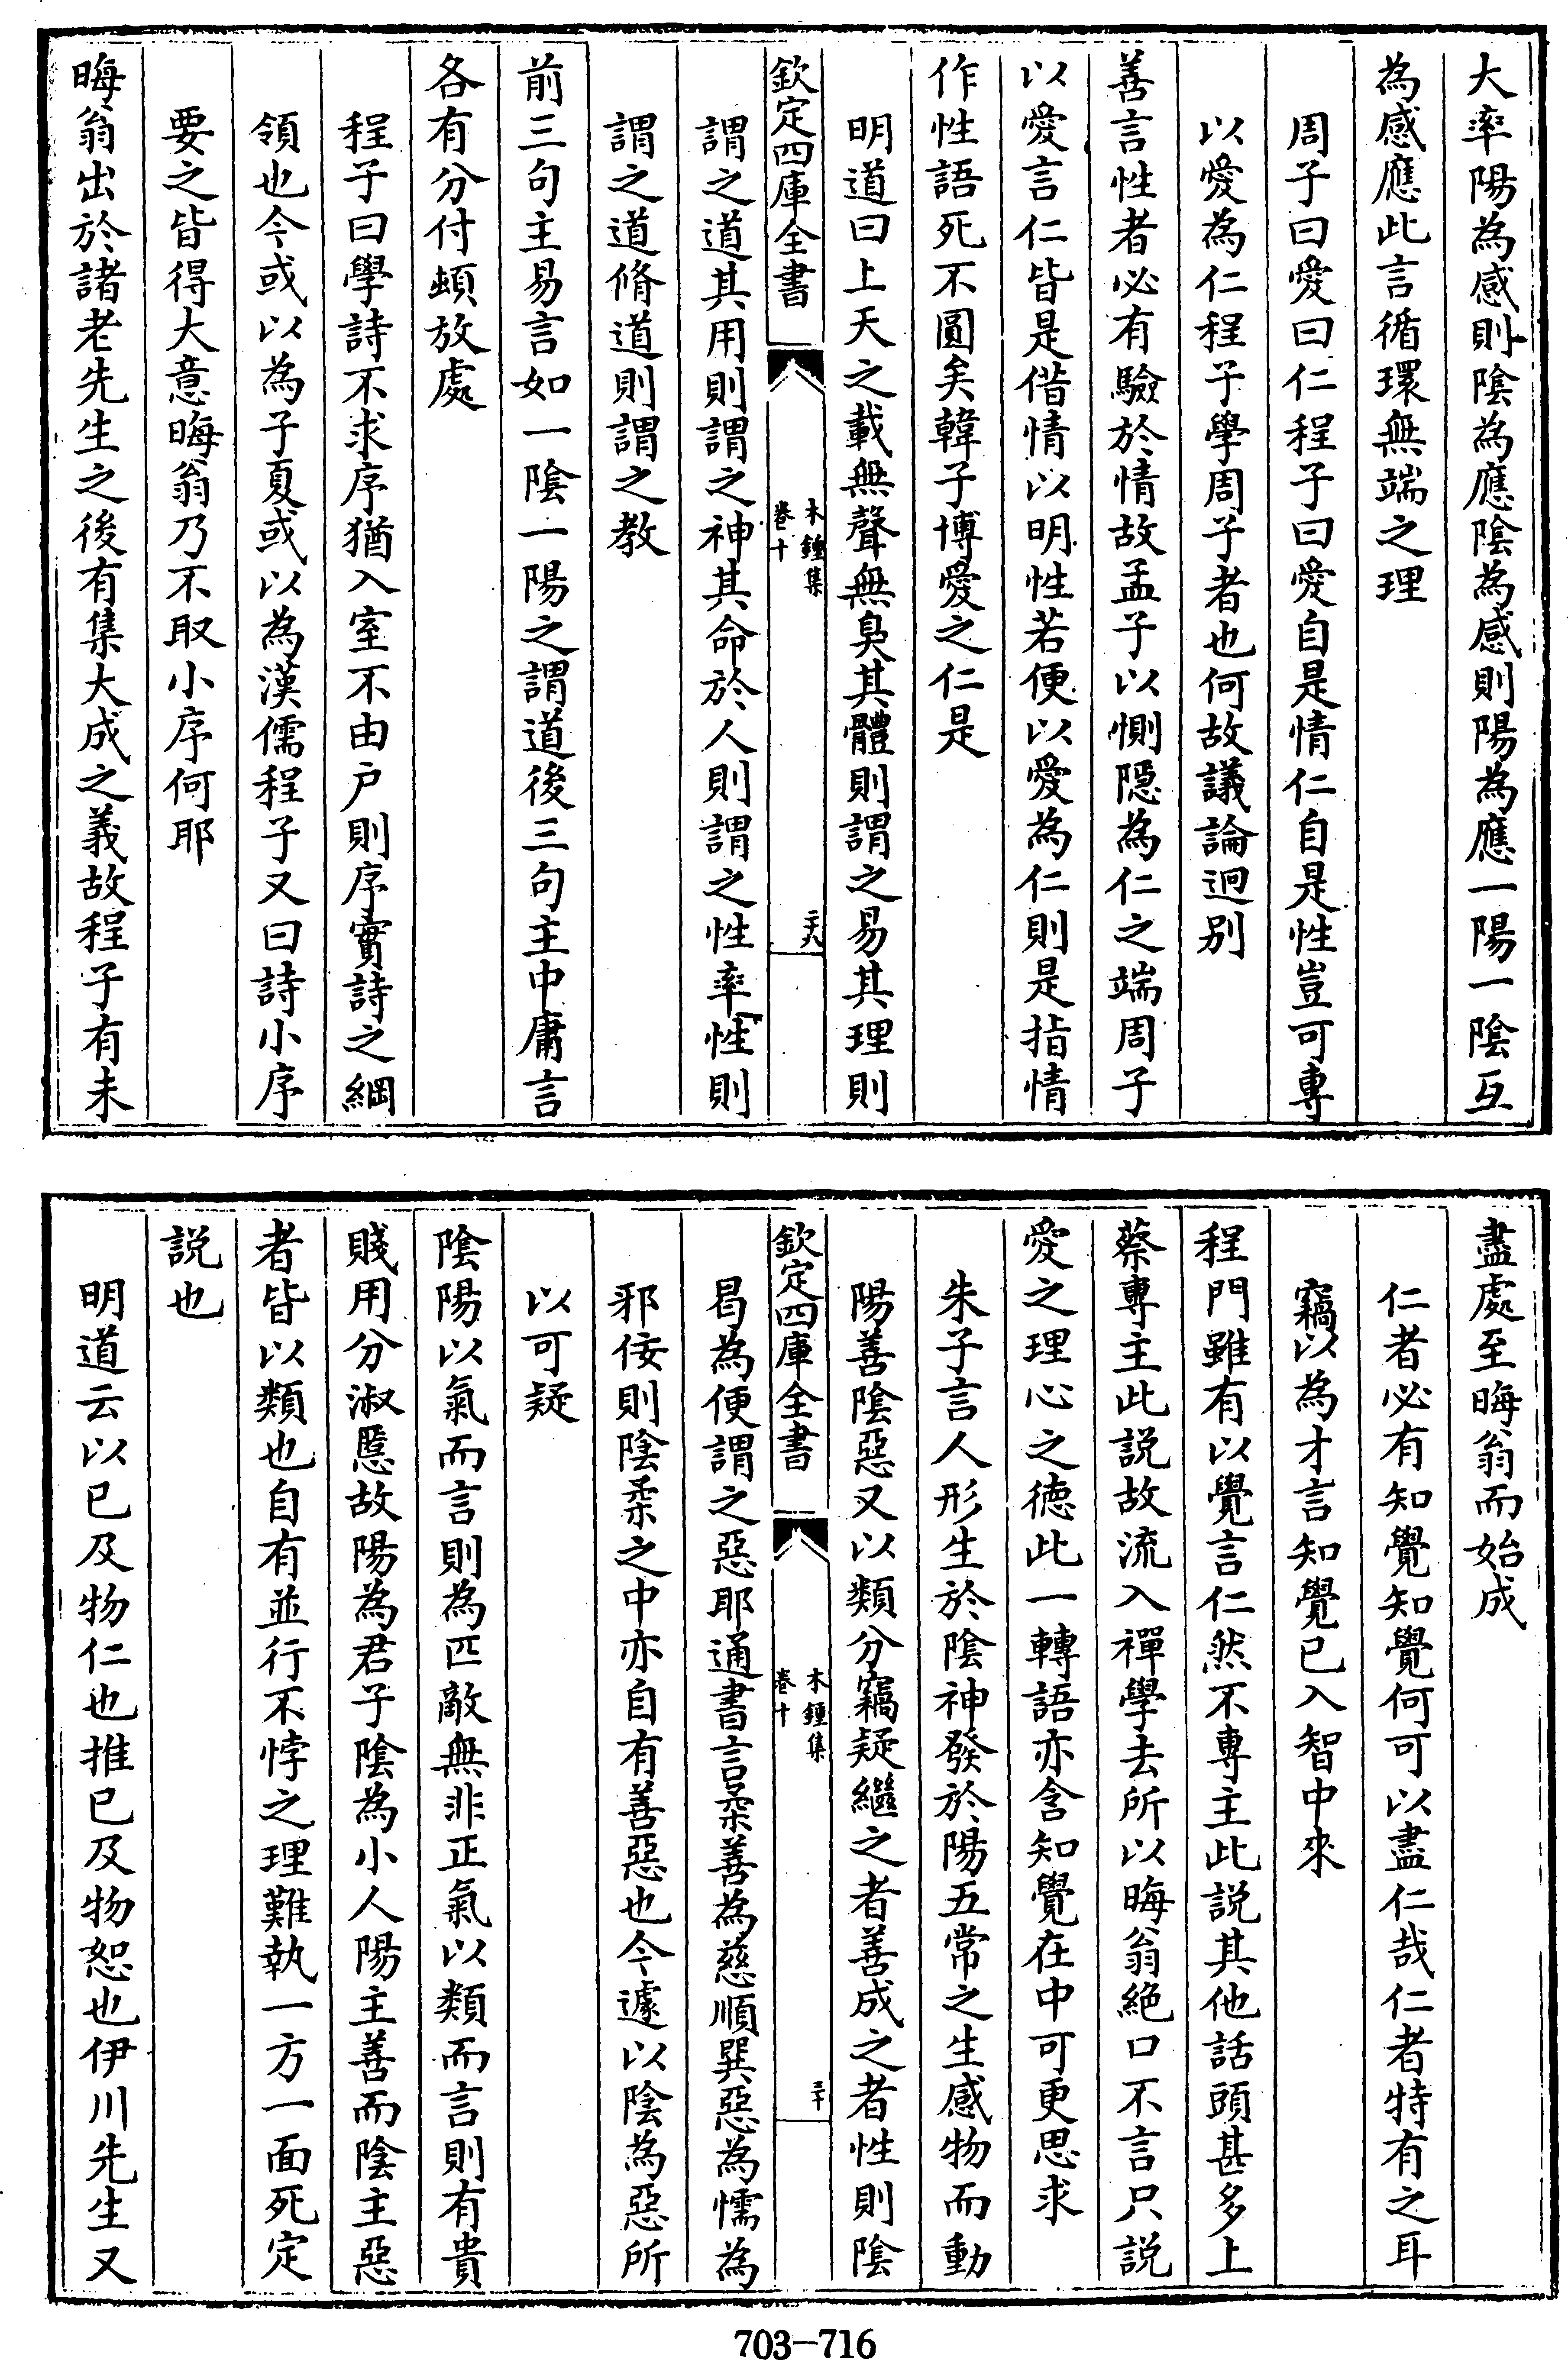 大率陽為感則陰為應陰為感則陽為應一陽一陰互
為感應此言循環無端之理
周子曰愛曰仁程子曰愛自是情仁自是性豈可專
以愛為仁程子學周子者也何故議論迥别
善言性者必有驗於情故孟子以惻隱為仁之端周子
以愛言仁皆是借情以明性若便以愛為仁則是指情
作性語死不圓矣韓子博愛之仁是
明道曰上天之載無聲無臭其體則謂之易其理則
欽定四庫全書
木鍾集
卷十
二十八
謂之道其用則謂之神其命於人則謂之性率性則
謂之道脩道則謂之教
前三句主易言如一陰一陽之謂道後三句主中庸言
各有分付頓放處
程子曰學詩不求序猶入室不由户則序實詩之綱
領也今或以為子夏或以為漢儒程子又曰詩小序
要之皆得大意晦翁乃不取小序何耶
晦翁出於諸老先生之後有集大成之義故程子有未
盡處至晦翁而始成
仁者必有知覺知覺何可以盡仁哉仁者特有之耳
竊以為才言知覺已入智中來
程門雖有以覺言仁然不專主此説其他話頭甚多上
蔡專主此説故流入禪學去所以晦翁絶口不言只説
愛之理心之德此一轉語亦含知覺在中可更思求
朱子言人形生於陰神發於陽五常之生感物而動
陽善陰惡又以類分竊疑繼之者善成之者性則陰
欽定四庫全書
木鍾集
卷十
三十
曷為便謂之惡耶通書言柔善為慈順巽惡為懦為
邪佞則陰柔之中亦自有善惡也今遽以陰為惡所
以可疑
陰陽以氣而言則為匹敵無非正氣以類而言則有貴
賤用分淑慝故陽為君子陰為小人陽主善而陰主惡
者皆以類也自有並行不悖之理難執一方一面死定
説也
明道云以已及物仁也推已及物恕也伊川先生又
703-716